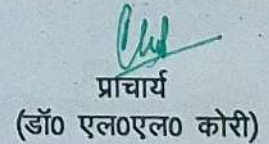 प्राचार्य
(डॉ0 एल0एल0 कोरी)